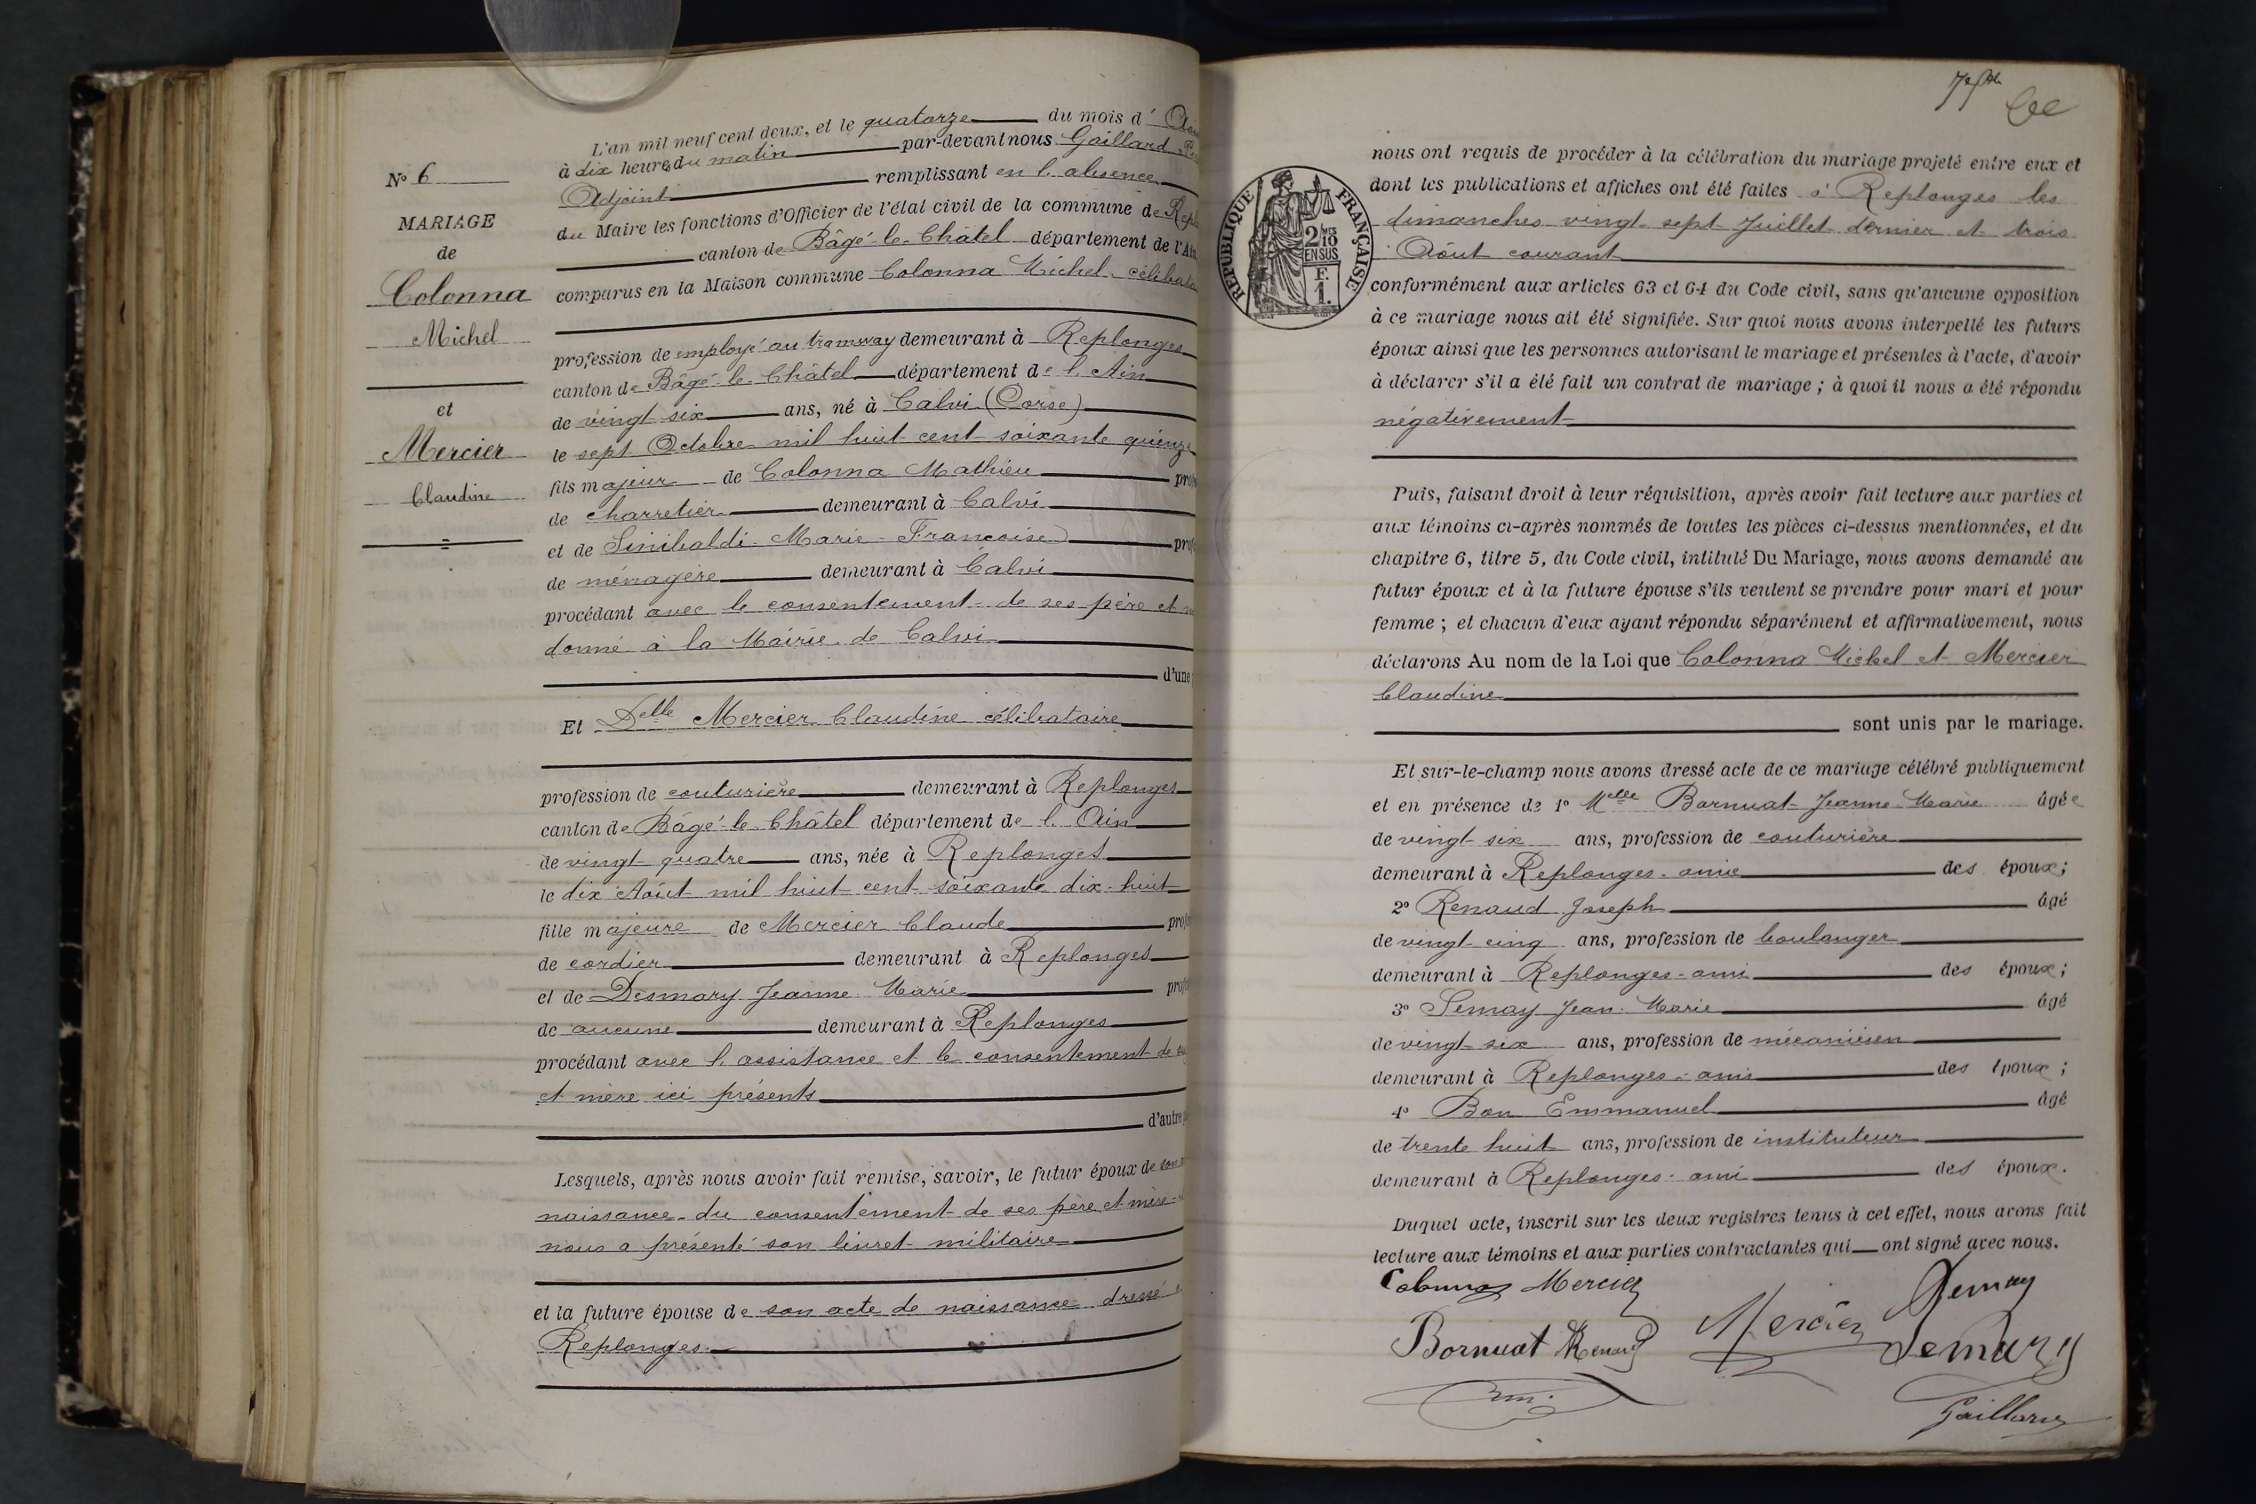 N° 6
MARIAGE
de
Colonna
Michel
et
Mercier
Claudine
L'an mil neuf cent deux, et le quatorze du mois d'
à dix heures du matin par-devant nous Gaillard
Adjoint remplissant en l'absence
du Maire les fonctions d'Officier de l'état civil de la commune de Repl
canton de Bâgé-le-Châtel département de l'Ain
comparus en la Maison commune Colonna Michel célibata
profession de employé au tramway demeurant à Replonges
canton de Bâgé-le-Châtel département de l'Ain
de vingt six ans, né à Calvi (Corse)
le sept Octobre mil huit cent soixante quinze
fils majeur de Colonna Mathieu prof
de charretier demeurant à Calvi
et de Sinibaldi Marie Françoise prof
de ménagère demeurant à Calvi
procédant avec le consentement de ses père et m
donné à la Mairie de Calvi
d'une
Et Delle Mercier Claudine célibataire
profession de couturière demeurant à Replonges
canton de Bâgé-le-Châtel département de l'Ain
de vingt quatre ans, née à Replonges
le dix Août mil huit cent soixante dix-huit
fille majeure de Mercier Claude prof
de cordier demeurant à Replonges
et de Desmary Jeanne Marie prof
de aucune demeurant à Replonges
procédant avec l'assistance et le consentement de
et mère ici présents
d'autre
Lesquels, après nous avoir fait remise, savoir, le futur époux de son
naissance du consentement de ses père et mère
nous a présenté son livret militaire
et la future épouse de son acte de naissance dressé
Replonges.
RÉPUBLIQUE FRANÇAISE
2/10
EN SUS
F.
1.
nous ont requis de procéder à la célébration du mariage projeté entre eux et
dont les publications et affiches ont été faites à Replonges les
dimanches vingt sept Juillet dernier et trois
Août courant
conformément aux articles 63 et 64 du Code civil, sans qu'aucune opposition
à ce mariage nous ait été signifiée. Sur quoi nous avons interpellé les futurs
époux ainsi que les personnes autorisant le mariage et présentes à l'acte, d'avoir
à déclarer s'il a été fait un contrat de mariage ; à quoi il nous a été répondu
négativement
Puis, faisant droit à leur réquisition, après avoir fait lecture aux parties et
aux témoins ci-après nommés de toutes les pièces ci-dessus mentionnées, et du
chapitre 6, titre 5, du Code civil, intitulé Du Mariage, nous avons demandé au
futur époux et à la future épouse s'ils veulent se prendre pour mari et pour
femme ; et chacun d'eux ayant répondu séparément et affirmativement, nous
déclarons Au nom de la Loi que Colonna Michel et Mercier
Claudine
sont unis par le mariage.
Et sur-le-champ nous avons dressé acte de ce mariage célébré publiquement
et en présence de 1° Melle Bornuat Jeanne Marie âgée
de vingt six ans, profession de couturière
demeurant à Replonges - amie des époux ;
2° Renaud Joseph âgé
de vingt cinq ans, profession de boulanger
demeurant à Replonges - ami des époux ;
3° Semay Jean Marie âgé
de vingt six ans, profession de mécanicien
demeurant à Replonges - ami des époux ;
4° Bon Emmanuel âgé
de trente huit ans, profession de instituteur
demeurant à Replonges - ami des époux.
Duquel acte, inscrit sur les deux registres tenus à cet effet, nous avons fait
lecture aux témoins et aux parties contractantes qui ont signé avec nous.
Colonna Mercier
Bornuat Renaud Mercier
Gaillard